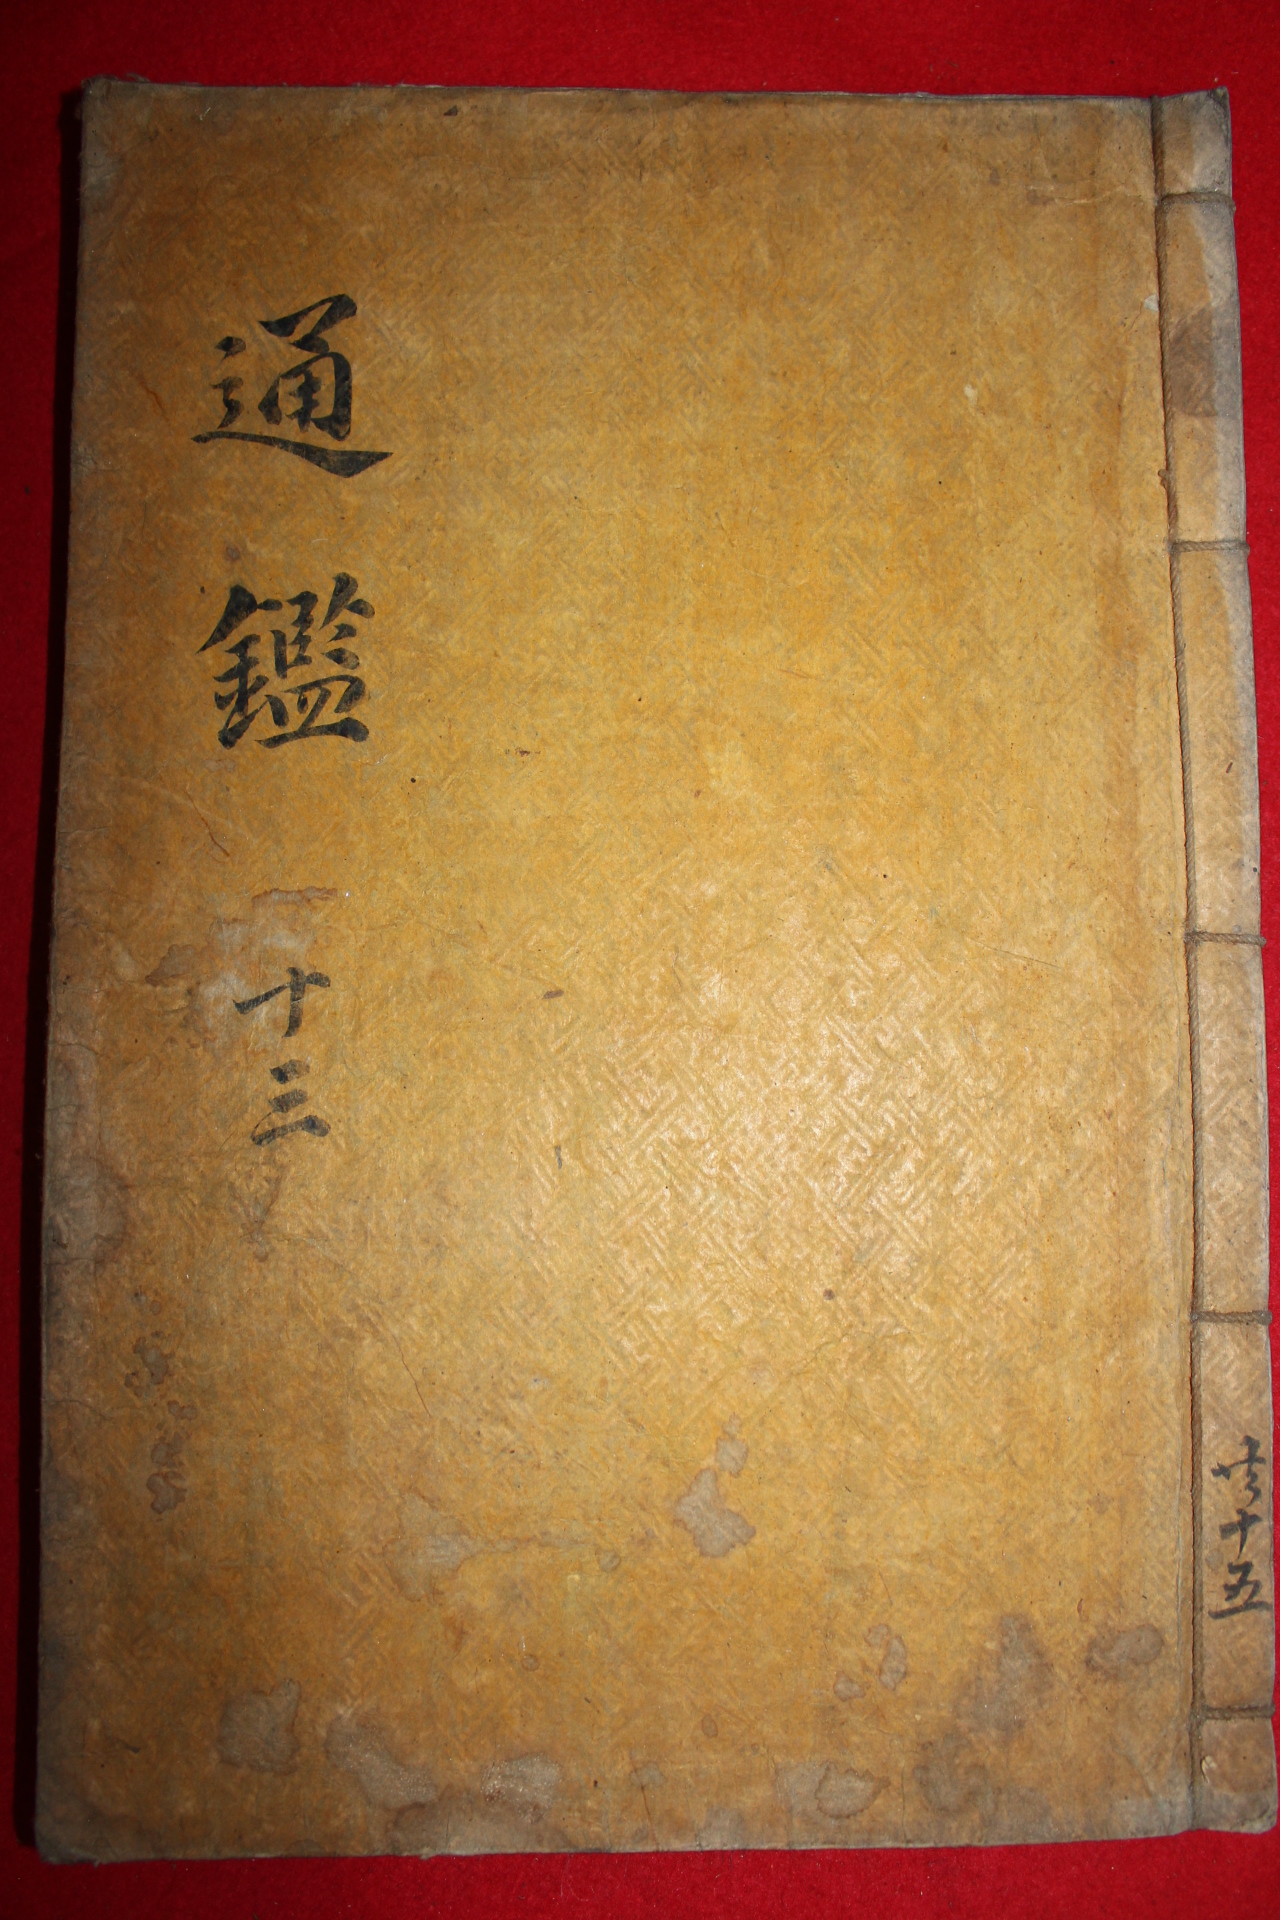 通鑑 十三
共十五